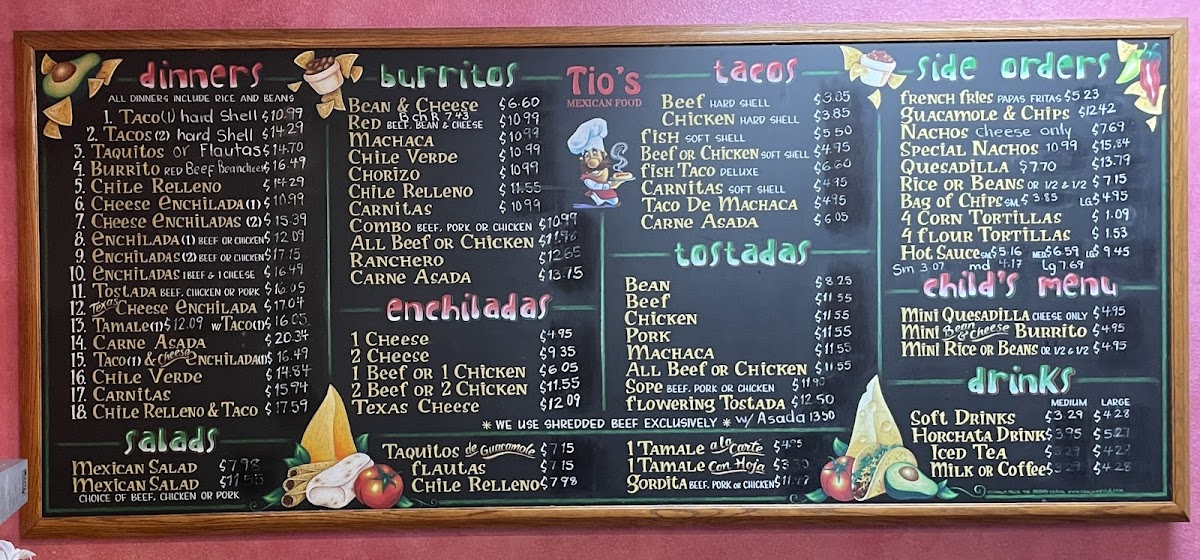 dinners
ALL DINNERS INCLUDE RICE AND BEANS
1. Taco (1) hard Shell $10.99
2. Tacos (2) hard Shell $14.29
3. Taquitos or Flautas $14.70
4. Burrito RED Beef Beancheese $16.49
5. Chile Relleno $14.29
6. Cheese Enchilada (1) $10.99
7. Cheese Enchiladas (2) $15.39
8. Enchilada (1) BEEF OR CHICKEN $12.09
9. Enchiladas (2) BEEF OR CHICKEN $17.15
10. Enchiladas 1 BEEF & 1 CHEESE $16.49
11. Tostada BEEF, CHICKEN OR PORK $16.05
12. Texas Cheese Enchilada $17.04
13. Tamale (1) $12.09 w/Taco (1) $16.05
14. Carne Asada $20.34
15. Taco (1) & Cheese Enchilada (1) $16.49
16. Chile Verde $14.84
17. Carnitas $15.94
18. Chile Relleno & Taco $17.59
salads
Mexican Salad $7.98
Mexican Salad $11.55
CHOICE OF BEEF, CHICKEN OR PORK
burritos
Bean & Cheese $6.60
B ch R 7.43
Red BEEF, BEAN & CHEESE $10.99
Machaca $10.99
Chile Verde $10.99
Chorizo $10.99
Chile Relleno $11.55
Carnitas $10.99
Combo BEEF, PORK OR CHICKEN $10.99
All Beef or Chicken
Ranchero $12.65
Carne Asada $13.75
enchiladas
1 Cheese $4.95
2 Cheese $9.35
1 Beef or 1 Chicken $6.05
2 Beef or 2 Chicken $11.55
Texas Cheese $12.09
Tio's
MEXICAN FOOD
tacos
Beef HARD SHELL $3.85
Chicken HARD SHELL $3.85
Fish SOFT SHELL $5.50
Beef or Chicken SOFT SHELL $4.95
Fish Taco DELUXE $6.60
Carnitas SOFT SHELL $4.95
Taco De Machaca $4.95
Carne Asada $6.05
tostadas
Bean $8.25
Beef $11.55
Chicken $11.55
Pork $11.55
Machaca $11.55
All Beef or Chicken $11.55
Sope BEEF, PORK OR CHICKEN
Flowering Tostada $12.50
* WE USE SHREDDED BEEF EXCLUSIVELY * w/ Asada 13.50
Taquitos de Guacamole $7.15
Flautas $7.15
Chile Relleno $7.98
1 Tamale a la Carte $4.95
1 Tamale Con Hoja
Gordita BEEF, PORK OR CHICKEN
side orders
French Fries PAPAS FRITAS $5.23
Guacamole & Chips $12.42
Nachos cheese only $7.69
Special Nachos 10.99 $15.84
Quesadilla $7.70 $13.79
Rice or Beans OR 1/2 & 1/2 $7.15
Bag of Chips SM. $3.85 LG. $4.95
4 Corn Tortillas $1.09
4 Flour Tortillas $1.53
Hot Sauce SM. $5.16 MED. $6.59 LG. $9.45
Sm 3.07 md 4.17 Lg 7.69
child's menu
Mini Quesadilla CHEESE ONLY $4.95
Mini Bean & Cheese Burrito $4.95
Mini Rice or Beans OR 1/2 & 1/2 $4.95
drinks
MEDIUM LARGE
Soft Drinks $3.29 $4.28
Horchata Drink $3.95 $5.27
Iced Tea $3.29 $4.28
Milk or Coffee $3.29 $4.28